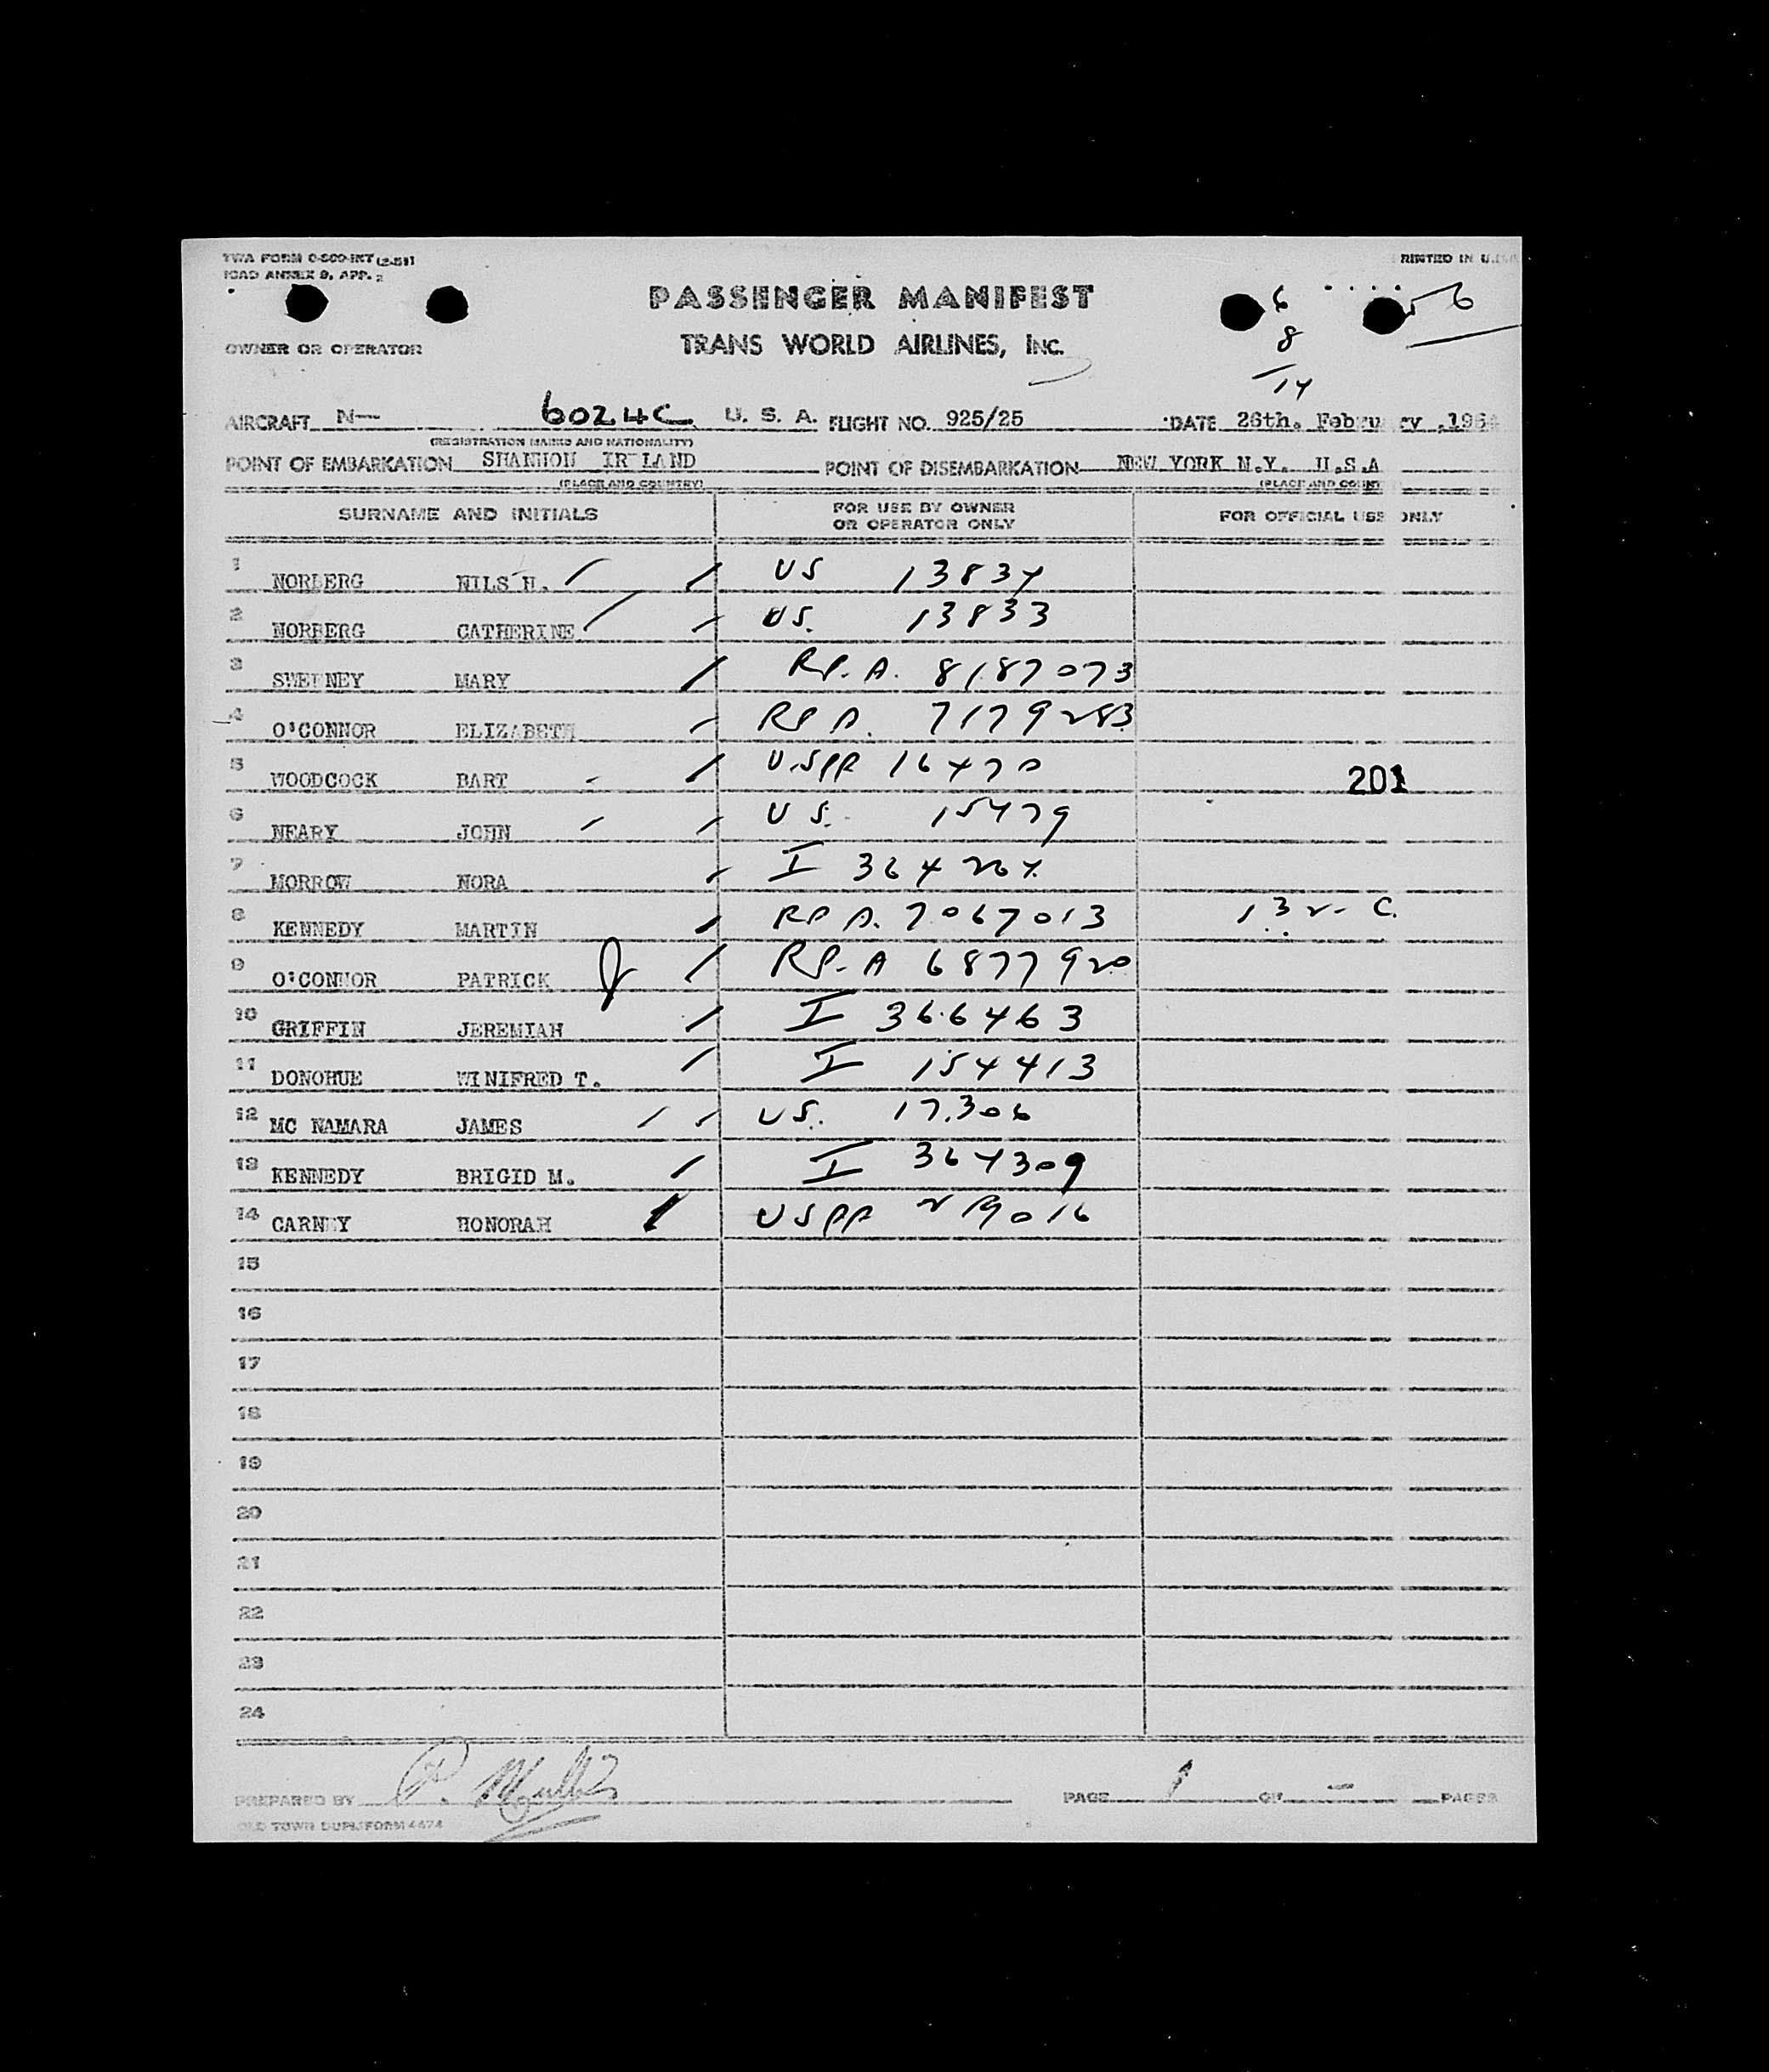 TWA FORM O-500-INT (2-51) PRINTED IN U.S.A.
ICAO ANNEX 9, APP. 2
PASSENGER MANIFEST 6 56
OWNER OR OPERATOR TRANS WORLD AIRLINES, Inc. 8
14
AIRCRAFT N— 6024C U. S. A. FLIGHT NO. 925/25 DATE 26th. February ,1954
(REGISTRATION MARKS AND NATIONALITY)
POINT OF EMBARKATION SHANNON IR LAND POINT OF DISEMBARKATION NEW YORK N.Y. U.S.A
(PLACE AND COUNTRY) (PLACE AND COUNT
SURNAME AND INITIALS FOR USE BY OWNER OR OPERATOR ONLY FOR OFFICIAL USE ONLY
1 NORBERG NILS H. US 13834
2 NORBERG CATHERINE US. 13833
3 SWEENEY MARY RP. A. 8187073
4 O'CONNOR ELIZABETH RP A. 7179283
5 WOODCOCK BART USPP 16470 201
6 NEARY JOHN US. 15479
7 MORROW NORA I 364264
8 KENNEDY MARTIN RP A. 7067013 132- C.
9 O'CONNOR PATRICK RP. A 6877920
10 GRIFFIN JEREMIAH I 366463
11 DONOHUE WINIFRED T. I 154413
12 MC NAMARA JAMES US. 17306
13 KENNEDY BRIGID M. I 364309
14 CARNEY HONORAH USPP 219016
15
16
17
18
19
20
21
22
23
24
PREPARED BY P. PAGE 1 OF — PAGES
OLD TOWN DUPL. FORM 4474